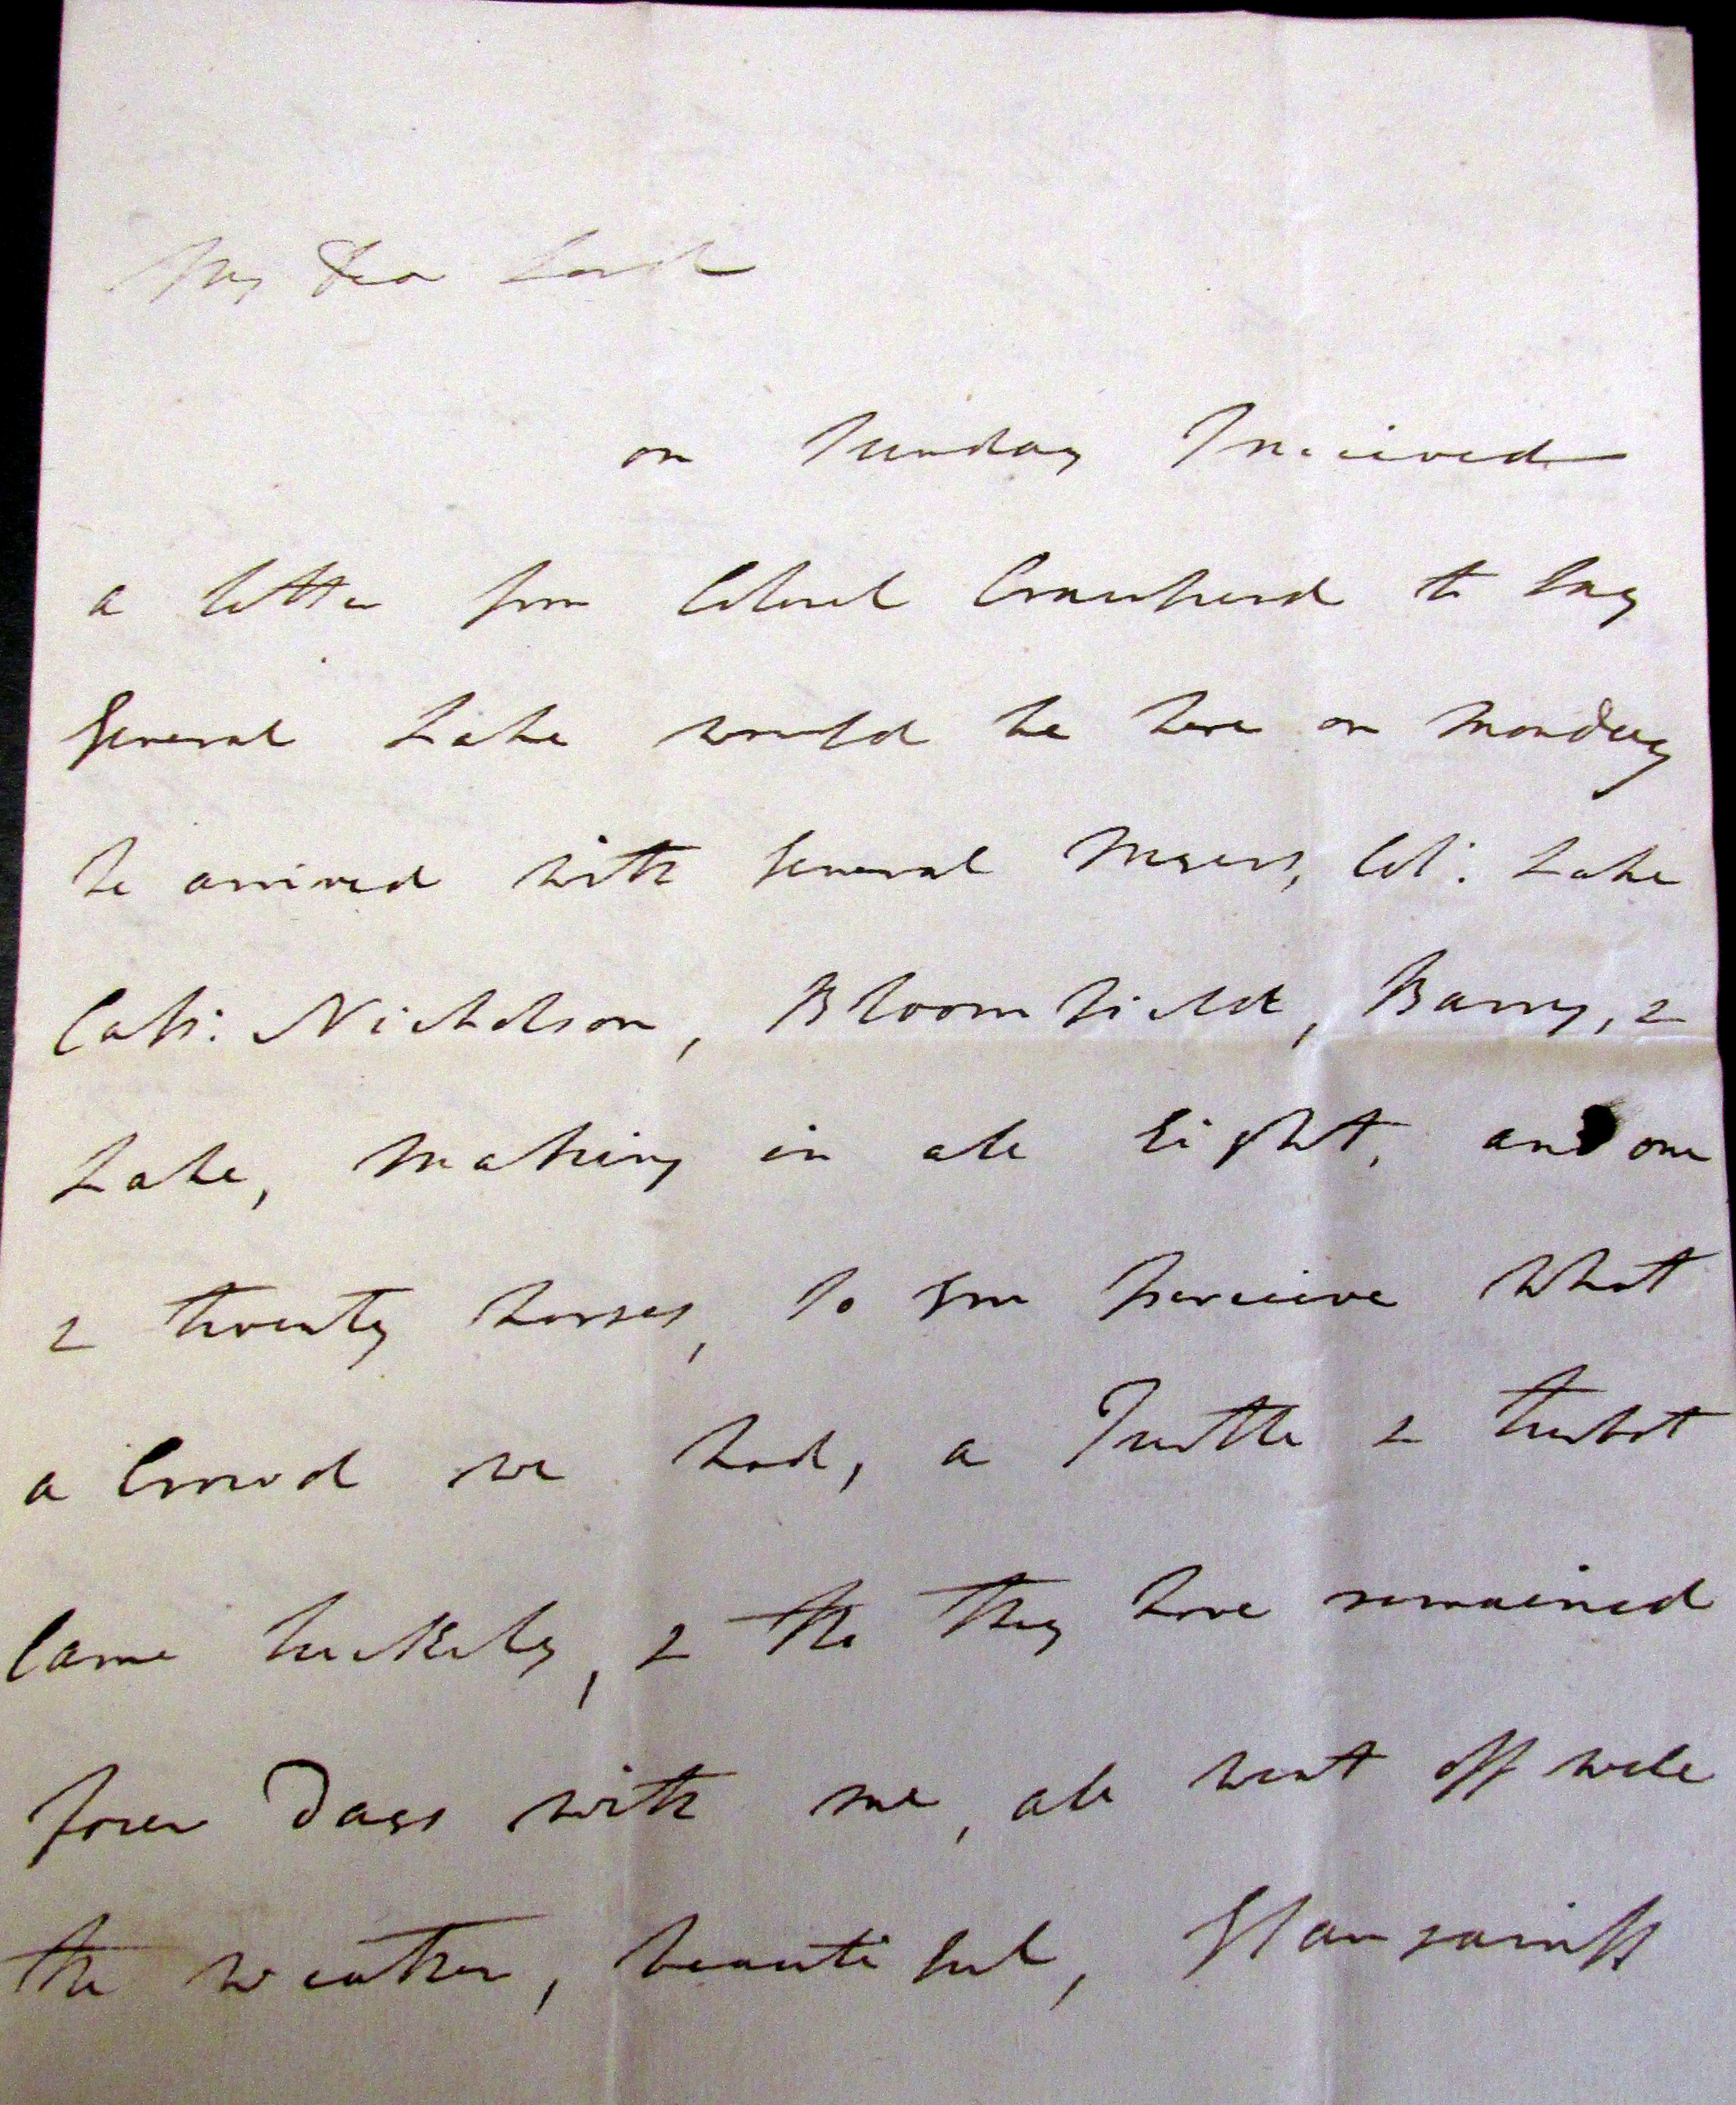 My Dear Lord
on Sunday I received
a letter from Colonel Craufurd to say
General Lake would be here on Monday
he arrived with General Meyers, Col: Lake
Capt: Nicholson, Bloomfield, Barry, &
Lake, making in all Eight, and one
& twenty horses, so you perceive what
a Crowd we had, a Turtle & turbot
Came luckily, & tho they have remained
four Days with me, all went off well
the weather, beautiful,